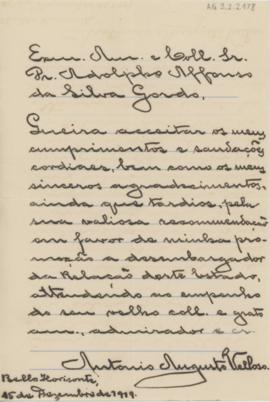 AG 3.2.2.178
Exm. Am. e Coll. Sr.
Dr. Adolpho Affonso
da Silva Gordo,
Queira acceitar os meus
cumprimentos e saudações
cordiaes, bem como os meus
sinceros agradecimentos,
ainda que tardios, pela
sua valiosa recommendação
em favor de minha pro-
moção a desembargador
da Relação deste Estado,
attendendo ao empenho
do seu velho coll. e grato
am., admirador e cr.
Antonio Augusto Velloso.
Bello Horizonte,
15 de Dezembro de 1919.